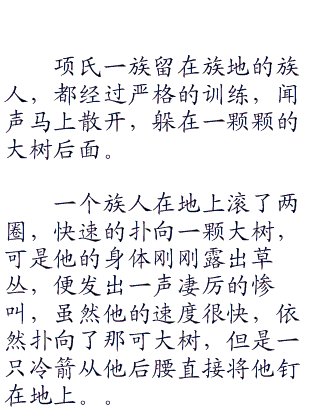 项氏一族留在族地的族
人，都经过严格的训练，闻
声马上散开，躲在一颗颗的
大树后面。
一个族人在地上滚了两
圈，快速的扑向一颗大树，
可是他的身体刚刚露出草
丛，便发出一声凄厉的惨
叫，虽然他的速度很快，依
然扑向了那可大树，但是一
只冷箭从他后腰直接将他钉
在地上。。